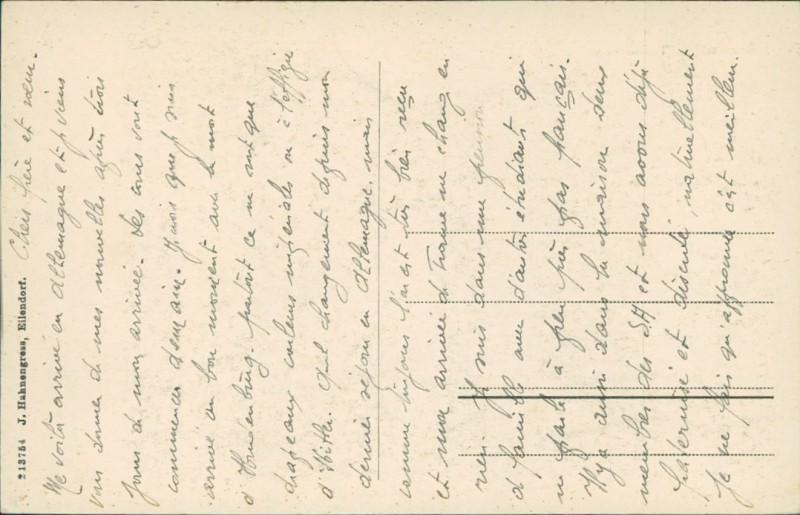 213754 J. Hahnengress, Eilendorf.
Chers frère et sœur.
Me voilà arrivé en Allemagne et je viens
vous donner de mes nouvelles après trois
jours de mon arrivée. Les cours vont
commencer demain. Je crois que je suis
arrivé au bon moment avec la mort
d'Hindenburg. partout ce ne sont que
drapeaux couleurs impériales ou à l'effigie
d'Hitler. Quel changement depuis mon
dernier séjour en Allemagne. mais
comme toujours l'on est très bien reçu
et mon arrivée de France ne change en
rien. Je suis dans une pension
de famille avec d'autres étudiants qui
ne parle à peu près pas français.
Il y a aussi dans la maison deux
membres des S.A et nous avons déjà
fraternisé et discuté, naturellement
je ne fais qu'approuver c'est meilleur.